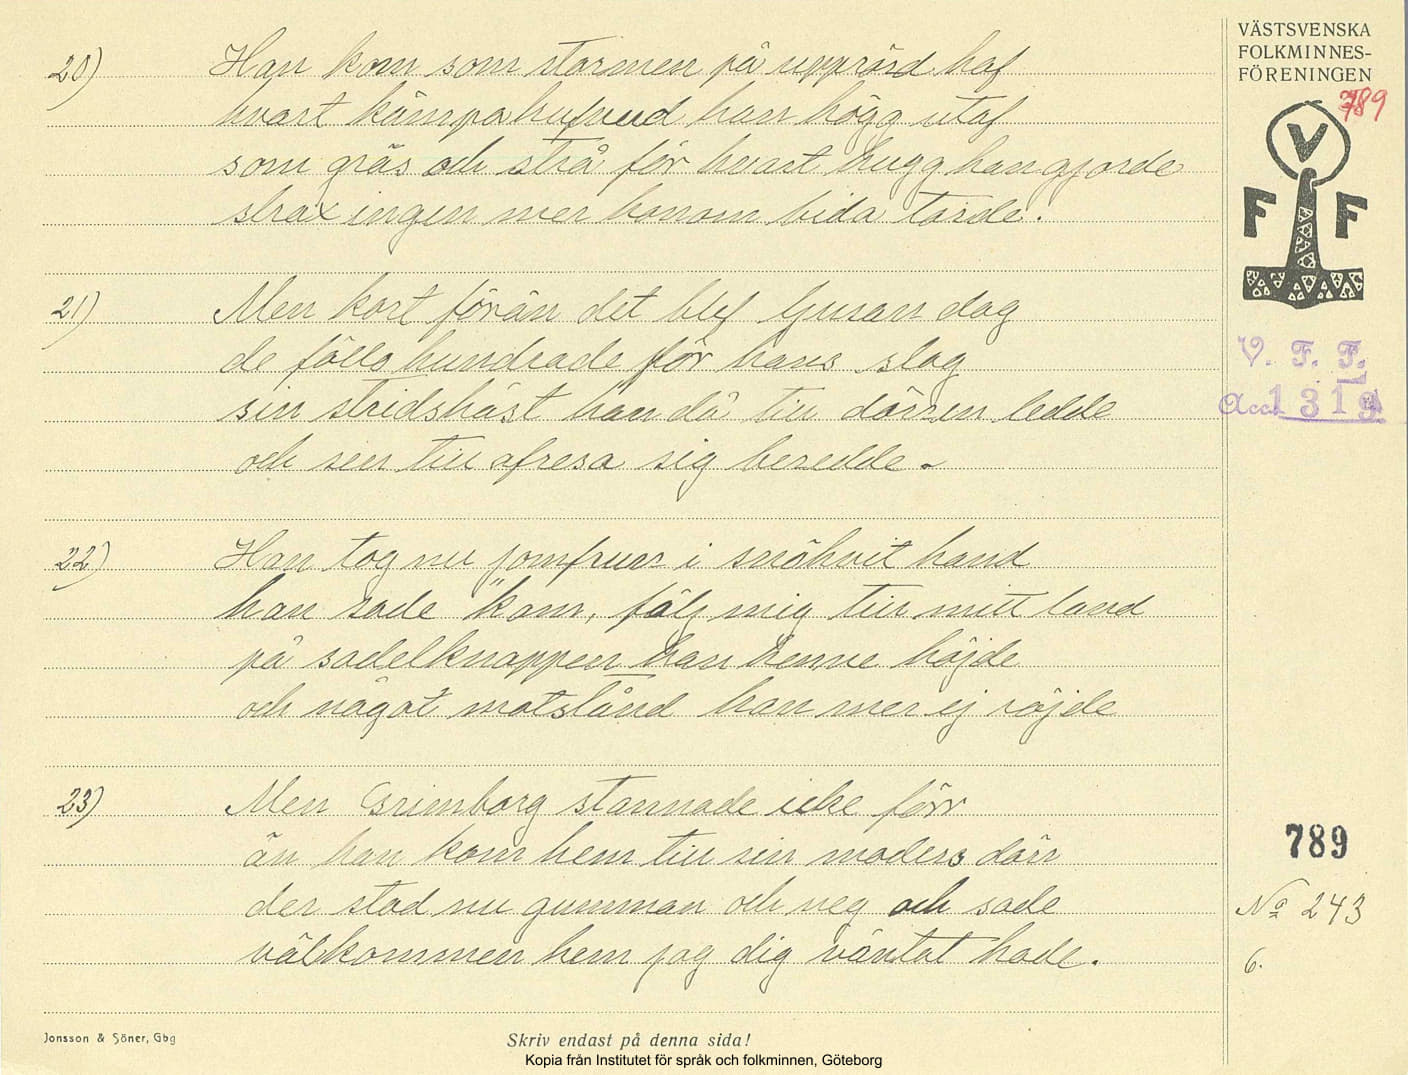 20) Han kom som stormen på upprörd haf
hvart kämpahufvud han högg utaf
som gräs och strå för hvart hugg han gjorde
strax ingen mer honom bida torde.
21) Men kort förän det blef ljusan dag
de föllo hundrade för hans slag
sin stridshäst han då till dörren ledde
och sen till afresa sig beredde.
22) Han tog nu jomfrun i snöhvit hand
han sade "kom, följ mig till mitt land
på sadelknappen han henne höjde
och något motstånd han mer ej röjde
23) Men Grimborg stannade icke förr
än han kom hem till sin moders dörr
der stod nu gumman och neg och sade
välkommen hem jag dig väntat hade.
VÄSTSVENSKA
FOLKMINNES-
FÖRENINGEN
789
V
F F
V. F. F.
Acc. 1319
789
No 243
6.
Jonsson & Söner, Gbg
Skriv endast på denna sida!
Kopia från Institutet för språk och folkminnen, Göteborg